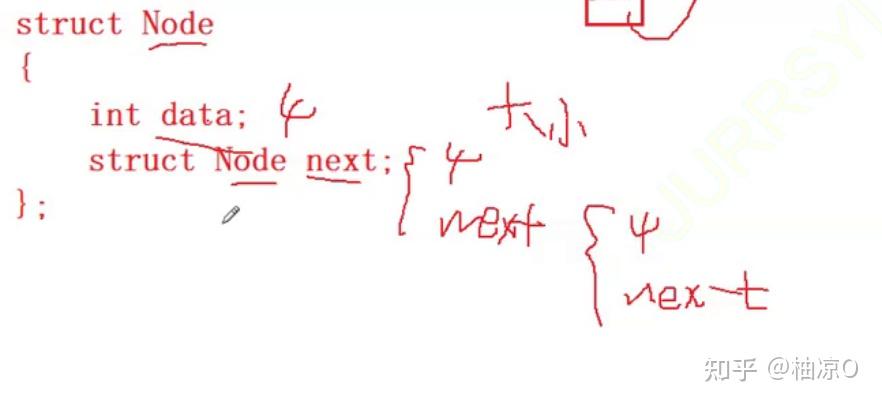 struct Node
{
int data; 4 大小
struct Node next; { 4
next { 4
next
};
知乎 @柚凉O